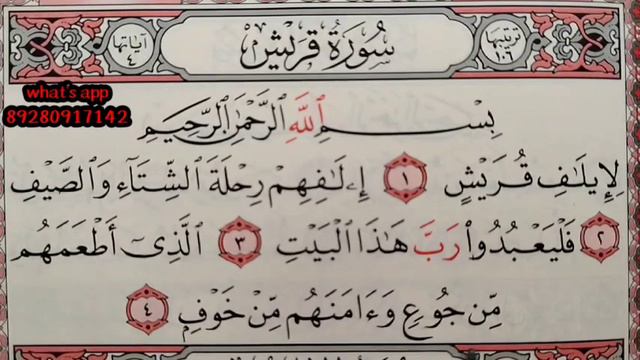 ترتيبها ١٠٦
سُورَةُ قُرَيْشٍ
آياتها ٤
what's app
89280917142
بِسْمِ ٱللَّهِ ٱلرَّحْمَٰنِ ٱلرَّحِيمِ
لِإِيلَٰفِ قُرَيْشٍ ١ إِۦلَٰفِهِمْ رِحْلَةَ ٱلشِّتَآءِ وَٱلصَّيْفِ
٢ فَلْيَعْبُدُوا۟ رَبَّ هَٰذَا ٱلْبَيْتِ ٣ ٱلَّذِىٓ أَطْعَمَهُم
مِّن جُوعٍ وَءَامَنَهُم مِّنْ خَوْفٍ ٤